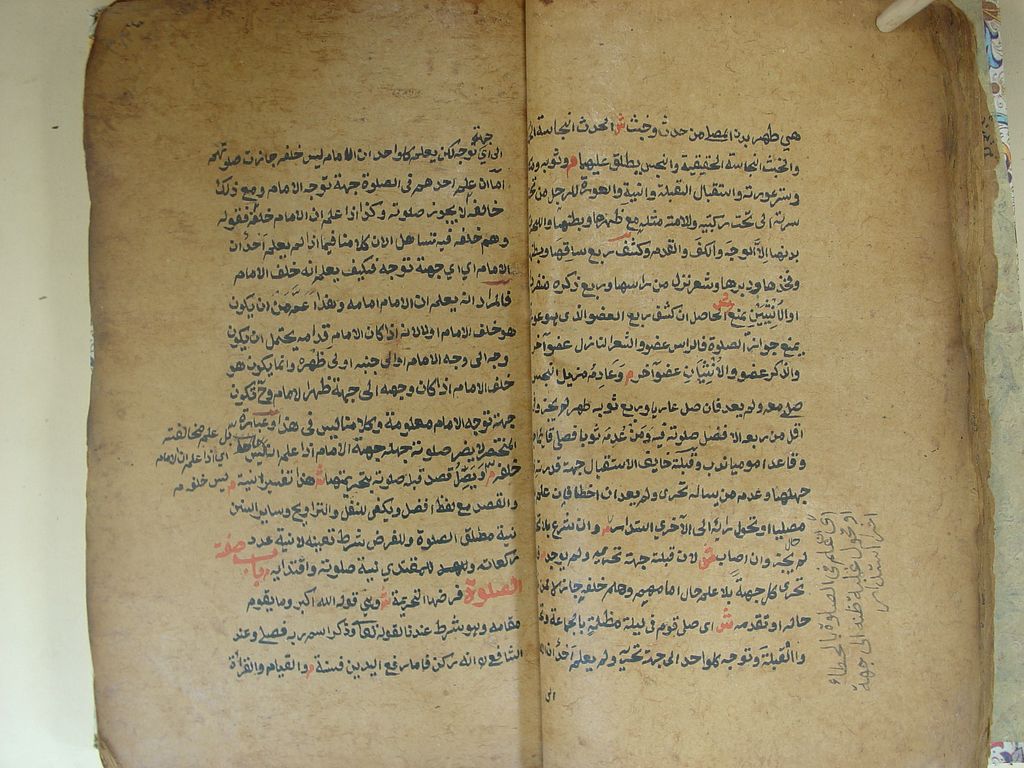 هي طهر بدن المصلي من حدث وخبث ش الحدث النجاسة
والخبث النجاسة الحقيقية والنجس يطلق عليهما م وثوبه
وستر عورته واستقبال القبلة والنية والعورة للرجل من
سرته الى تحت ركبتيه وللامة مثله مع ظهرها وبطنها
بدنها الا الوجه والكف والقدم وكشف ربع ساقها
وفخذها ودبرها وشعر نزل من راسها وربع ذكره
او الانثيين يمنع الحاصل ان كشف ربع العضو الذي هو عورة
يمنع جواز الصلوة فالراس عضو والشعر النازل عضو آخر
والذكر عضو والانثيان عضو آخر م وعادم مزيل النجس
صلى معه ولم يعد فان صلى عاريا وربع ثوبه طهر لم يجز
اقل من ربعه الافضل صلوته فيه ومن عدم ثوبا فصلى قائما
وقاعدا موميا ندب وقبلة خايف الاستقبال جهة قدرته
جهلها وعدم من يساله تحرى ولم يعد ان اخطا فان علم
مصليا او تحول رايه الى الآخرى استدار وان شرع بلا
لم يجز وان اصاب ش لان قبلته جهة تحريه ولم يوجد
تحرى كل جهة بلا علم حال امامهم وهم خلفه جاز لا لمن
حاله او تقدمه ش اى صلى قوم فى ليلة مظلمة بالجماعة
والقبلة وتوجه كل واحد الى جهة تحريه ولم يعلم احد ان
الى
اى علم فى الصلوة بالخطاء
او تحول غلبة ظنه الى جهة
اخرى استدار
جهة
الى اي توجه لكن يعلم كل واحد ان الامام ليس خلفه جازت صلوتهم
اما ان علم احدهم فى الصلوة جهة توجه الامام ومع ذلك
خالفه لا يجوز صلوته وكذا اذا علم ان الامام خلفه فقوله
وهم خلفه فيه تساهل الان كلامنا فيما اذا لم يعلم احد ان
الامام اي اي جهة توجه فكيف يعلم انه خلف الامام
فالمراد انه يعلم ان الامام امامه وهذا اعم من ان يكون
هو خلف الامام اولا لانه اذا كان الامام قدامه يحتمل ان يكون
وجهه الى وجه الامام او الى جنبه او الى ظهره وانما يكون هو
خلف الامام اذا كان وجهه الى جهة ظهر الامام وح فيكون
جهة توجه الامام معلومة وكلامنا ليس فى هذا وعبارة
المختصر لا يضر صلوته جهله جهة الامام اذا علم انه ليس
خلفه م ويصل قصد قلبه صلوته بتحريمتها ش هذا تفسير النية م
والقصد مع لفظه افضل ويكفي للنفل والتراويح وساير السنن
نية مطلق الصلوة وللفرض شرط تعيينه لا نية عدد
ركعاته وللمقتدي نية صلوته واقتدايه باب صفة
الصلوة فرضها التحريمة ش وهي قوله الله اكبر وما يقوم
مقامه وهو شرط عندنا لقوله تعالى وذكر اسم ربه فصلى وعند
الشافعي انه ركن فاما رفع اليدين فسنة م والقيام والقراءة
بل علم مخالفته
اي اذا علم ان الامام
ليس خلفه م